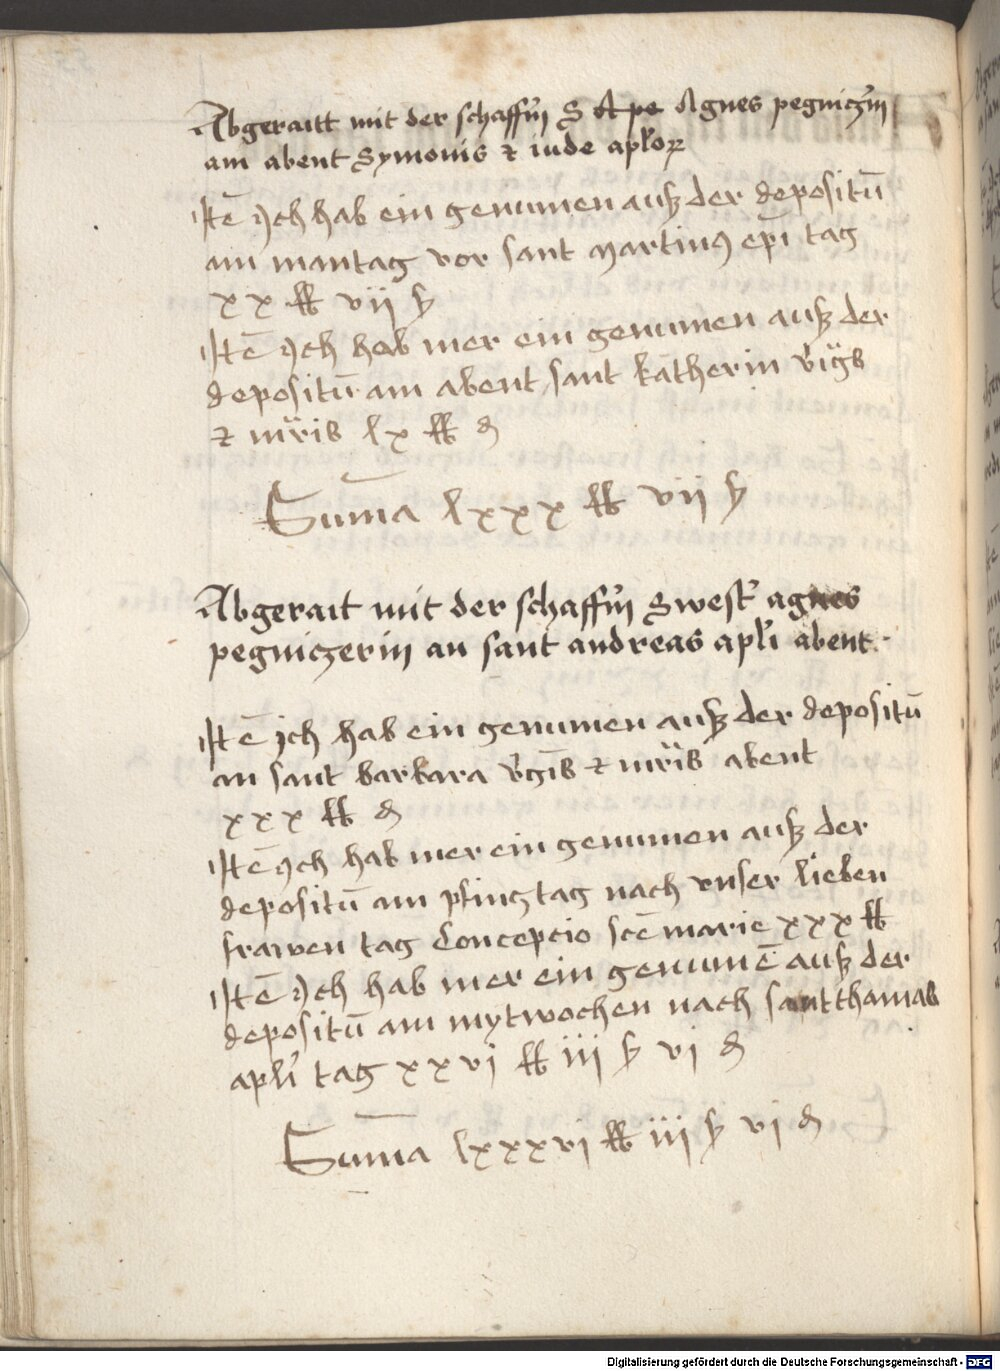 Abgeraitt mit der schaffīn S Agnes pegniczīn
am abent Symonis ⁊ iude aplōꝝ
Itē Ich hab ein genumen auß der depositū
am mantag vor sant Martinꝰ ep̄i tag
xx ℔ vij ß
Itē Ich hab mer ein genumen auß der
depositū am abent sant katherin v̄gīs
⁊ mr̄is lx ℔ ₰
Sum̄a lxxx ℔ vij ß
Abgerait mit der schaffīn Swestˀ agnes
pegniczerin an sant andreas apl̄i abent.
Itē ich hab ein genumen auß der depositū
an sant barbara v̄gīs ⁊ mr̄is abent
xxx ℔ ₰
Itē Ich hab mer ein genumen auß der
depositū am pfincztag nach vnser lieben
frawen tag Concepcio scē marie xxx ℔
Itē Ich hab mer ein genumē auß der
depositū am mytwochen nach sant thamas
apl̄i tag xxvj ℔ iij ß vj ₰
Sum̄a lxxxvj ℔ iij ß vj ₰
Digitalisierung gefördert durch die Deutsche Forschungsgemeinschaft - DFG